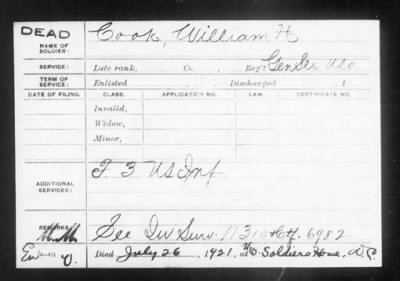 DEAD
NAME OF SOLDIER: Cook, William H
SERVICE: Late rank, Co. Reg't Gen Ser USA
TERM OF SERVICE: Enlisted , 1 Discharged , 1
DATE OF FILING. CLASS. APPLICATION NO. LAW. CERTIFICATE NO.
Invalid,
Widow,
Minor,
ADDITIONAL SERVICES: F. 3 US Inf
REMARKS: See Inv Surv. 11310 Ctf. 6982
Died July 26, 1921, at Soldiers Home, D.C.